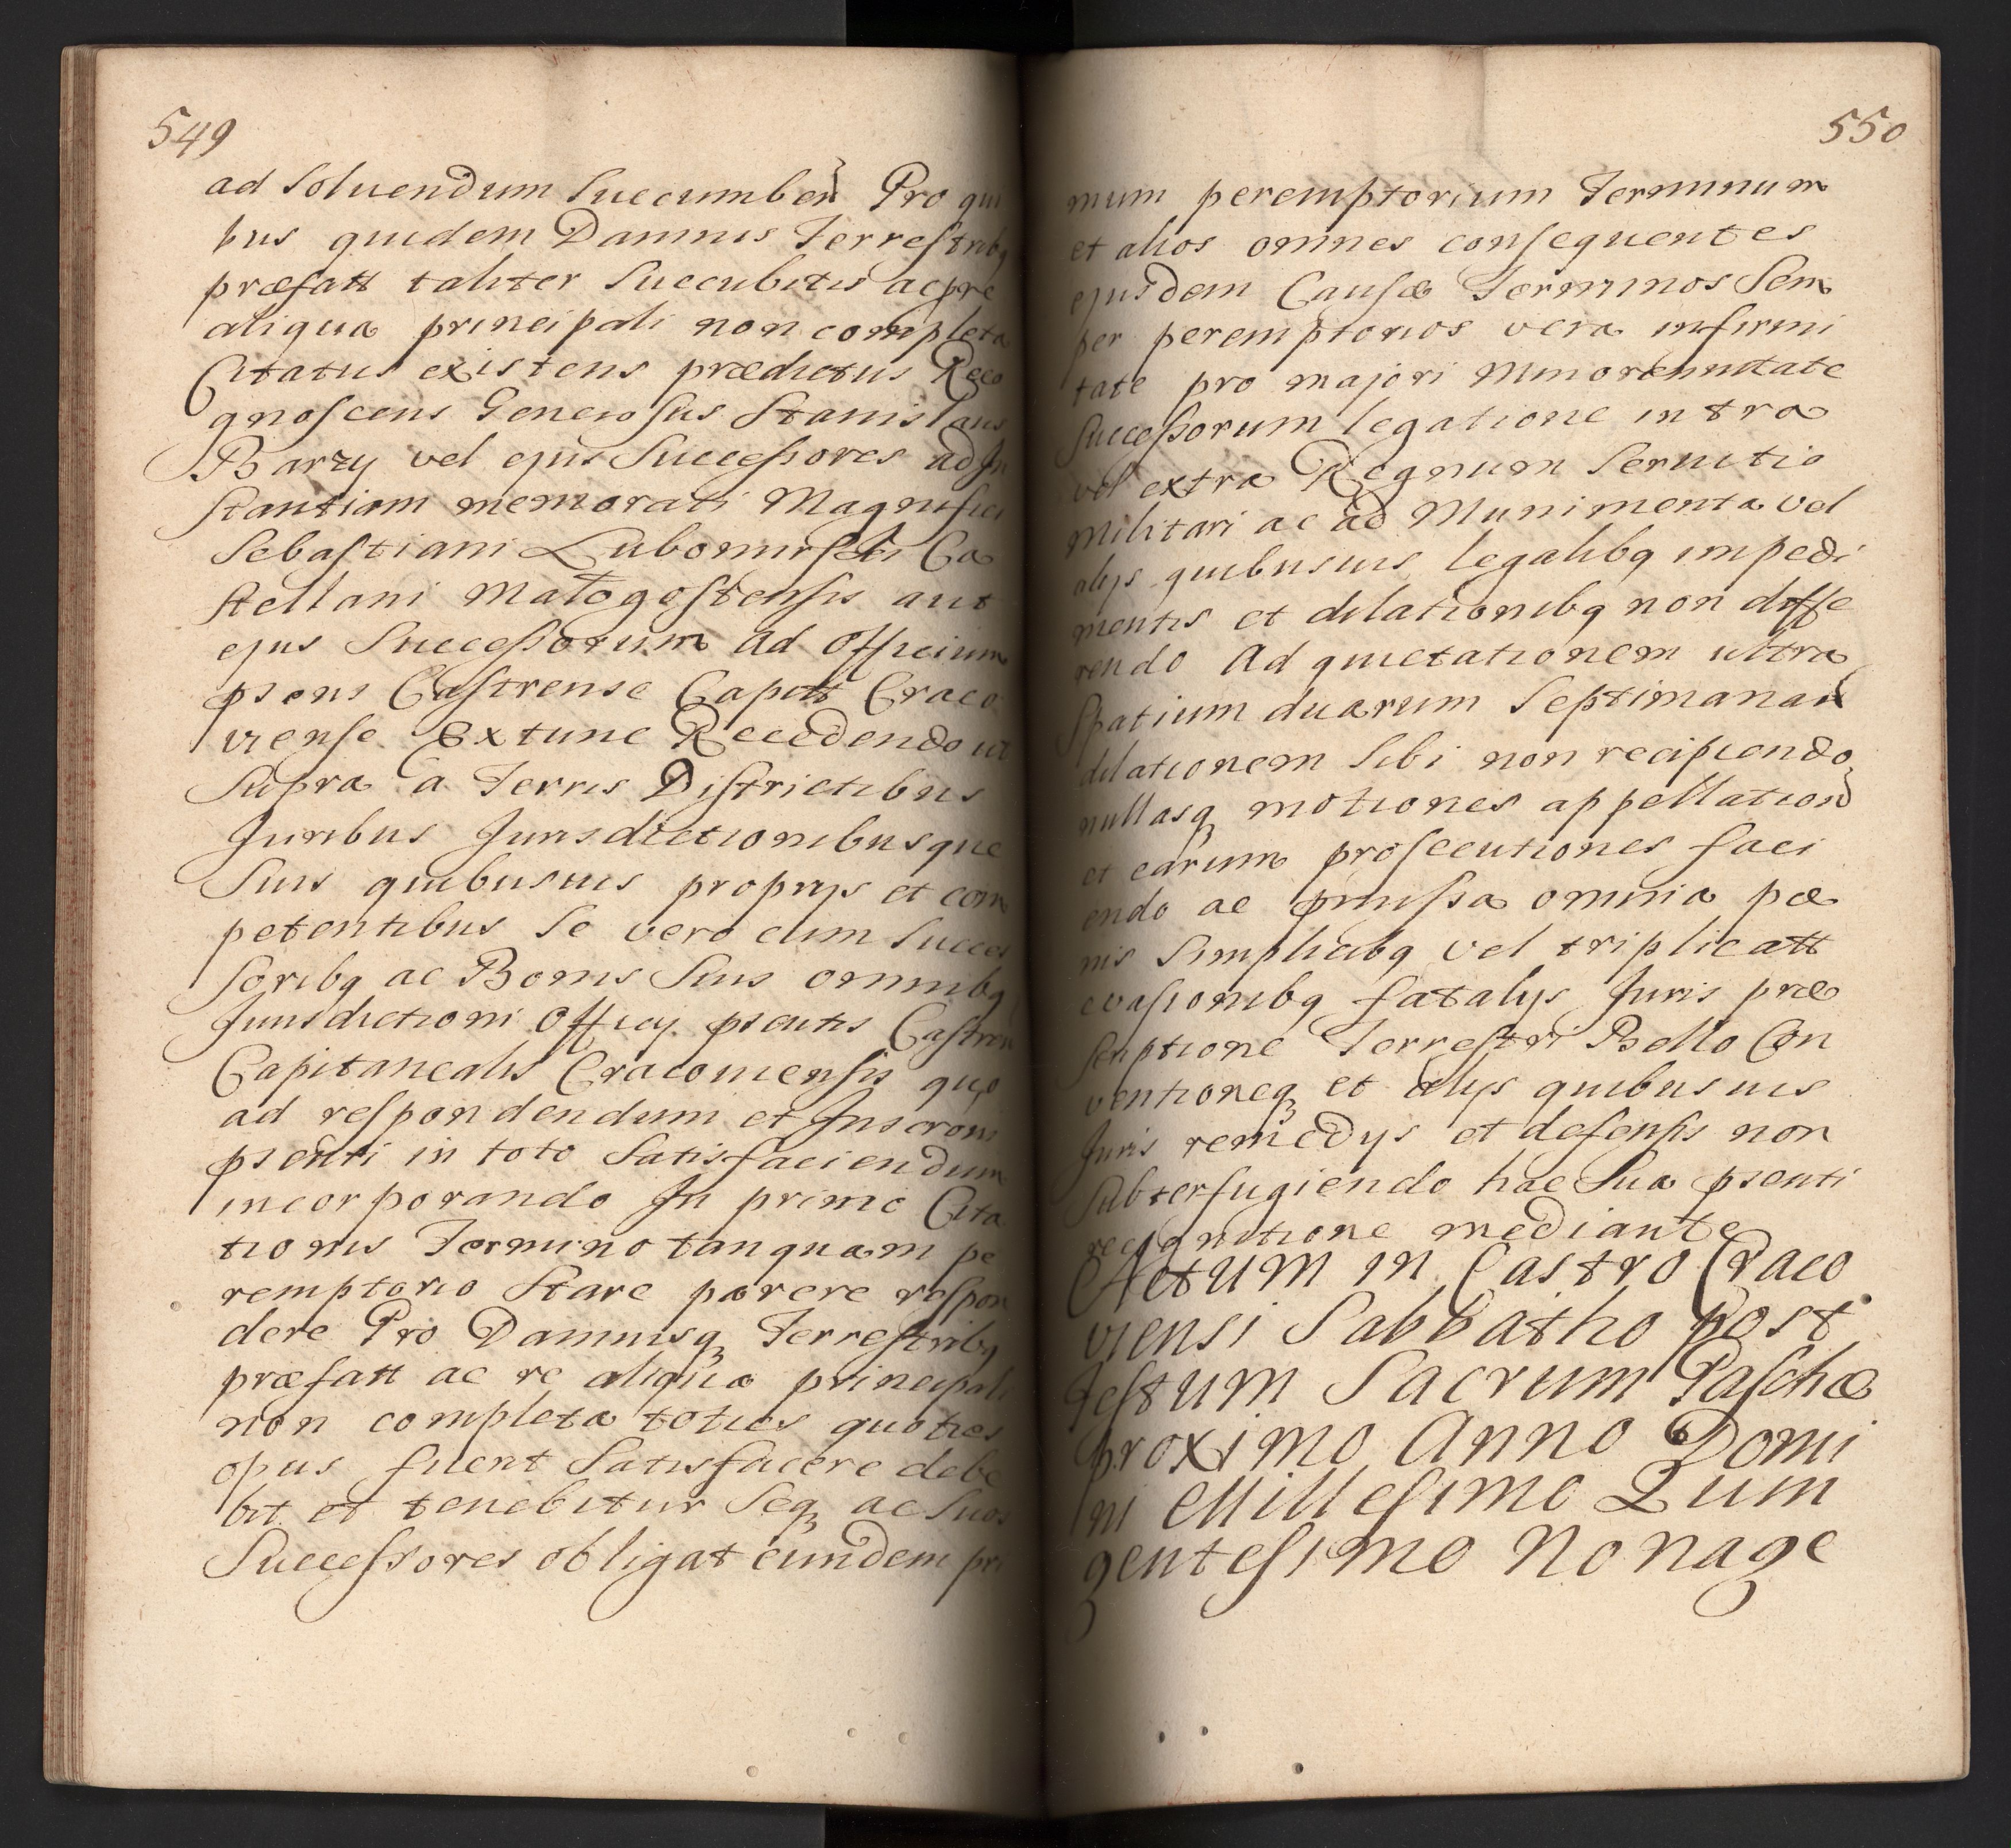 549
ad Soluendum Succumben Pro qui
bus quidem Damnis Terrestribq
præfatt taliter Succubitis ac pre
aliqua principali non completa
Citatus existens prædictus Reco
gnoscens Generosus Stanislaus
Barzy vel ejus Successores ad In
stantiam memorati Magnifici
Sebastiani Lubomirski Ca
stellani Małogostensis aut
ejus Successorum ad Officium
psens Castrense Capitt Craco
viense Extunc Recedendo ut
Supra a Terris Districtibus
Juribus Jurisdictionibusque
Suis quibusuis proprijs et com
petentibus Se vero cum Succes
soribq ac Bonis Suis omnibq
Jurisdictioni Officij psentis Castren
Capitanealis Cracouiensis quo
ad respondendum et Inscroni
psenti in toto Satisfaciendum
incorporando In primo Cita
tionis Termino tanquam pe
remptorio Stare parere respon
dere Pro Damnisq Terrestribq
præfatt ac re aliqua principali
non completa toties quoties
opus fuerit Satisfacere debe
bit et tenebitur Seq ac Suos
Successores obligat eundem pri
550
mum peremptorium Terminum
et alios omnes consequentes
ejusdem Causæ Terminos Sem
per peremptorios vera infirmi
tate pro majori Minorennitate
Successorum legatione intra
vel extra Regnum Seruitio
Militari ac ad Munimenta vel
alijs quibusuis legalibq impedi
mentis et dilationibq non diffe
rendo Ad quietationem ultra
Spatium duarum Septimanar
dilationem Sibi non recipiendo
nullasq motiones appellation
et earum prosecutiones faci
endo ac pmissa omnia pœ
nis Simplicibq vel triplicatt
evasionibq fatalijs Juris præ
scriptione Terrestri Bello Con
ventioneq et alijs quibusuis
Juris remedijs et defensis non
Subterfugiendo hac Sua psenti
recognitione mediante
Actum in Castro Craco
viensi Sabbatho post
Festum Sacrum Paschæ
proximo Anno Domi
ni Millesimo Quin
gentesimo Nonage